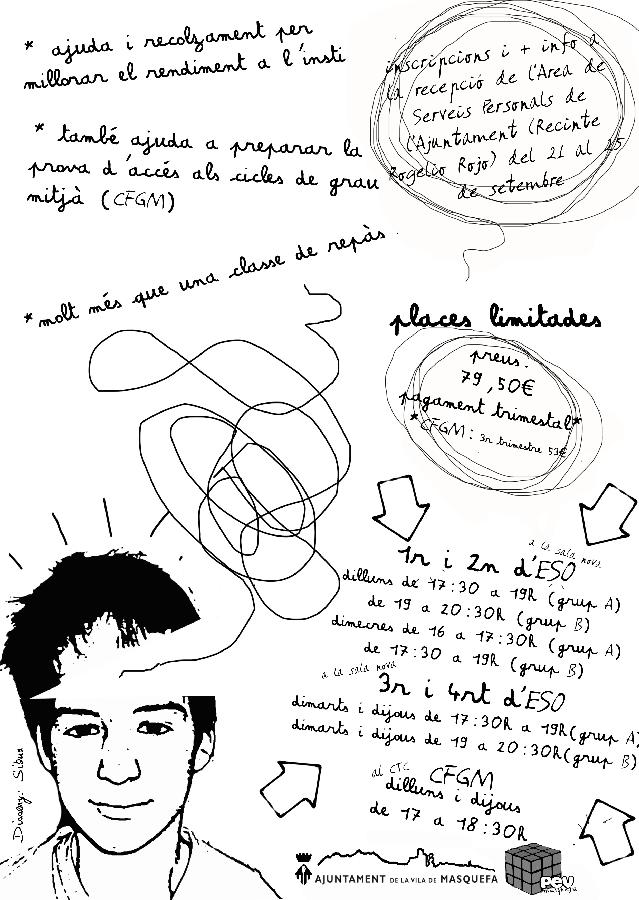 * ajuda i recolzament per
millorar el rendiment a l'insti
* també ajuda a preparar la
prova d'accés als cicles de grau
mitjà (CFGM)
* molt més que una classe de repàs.
inscripcions i + info a
la recepció de l'Area de
Serveis Personals de
l'Ajuntament (Recinte
Rogelio Rojo) del 21 al 25
de setembre
places limitades
preus:
79,50€
pagament trimestral*
*CFGM: 3r trimestre 53€
a la sala nova
1r i 2n d'ESO
dilluns de 17:30 a 19h (grup A)
de 19 a 20:30h (grup B)
dimecres de 16 a 17:30h (grup A)
de 17:30 a 19h (grup B)
a la sala nova
3r i 4rt d'ESO
dimarts i dijous de 17:30h a 19h (grup A)
dimarts i dijous de 19 a 20:30h (grup B)
al CTC
CFGM
dilluns i dijous
de 17 a 18:30h
AJUNTAMENT DE LA VILA DE MASQUEFA